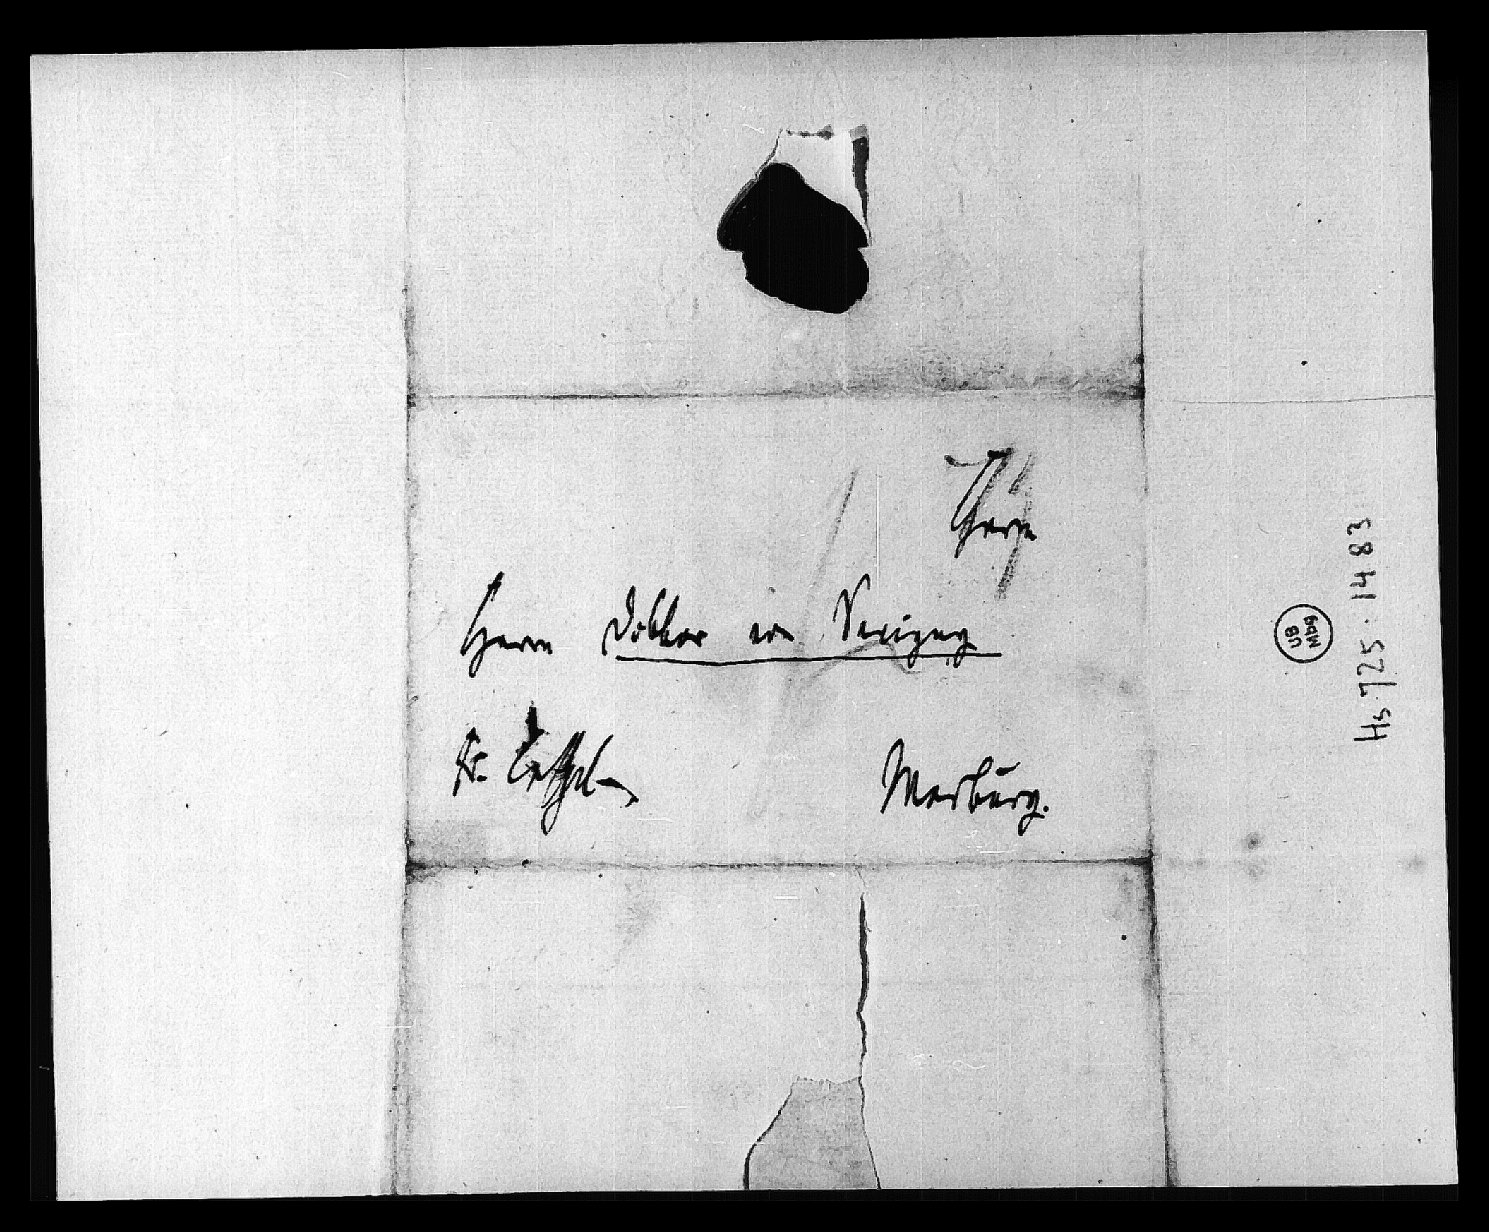 Herrn
Herrn Doktor von Savigny
fr. Cassel
Marburg.
UB
Mbg
Hs 725:1483